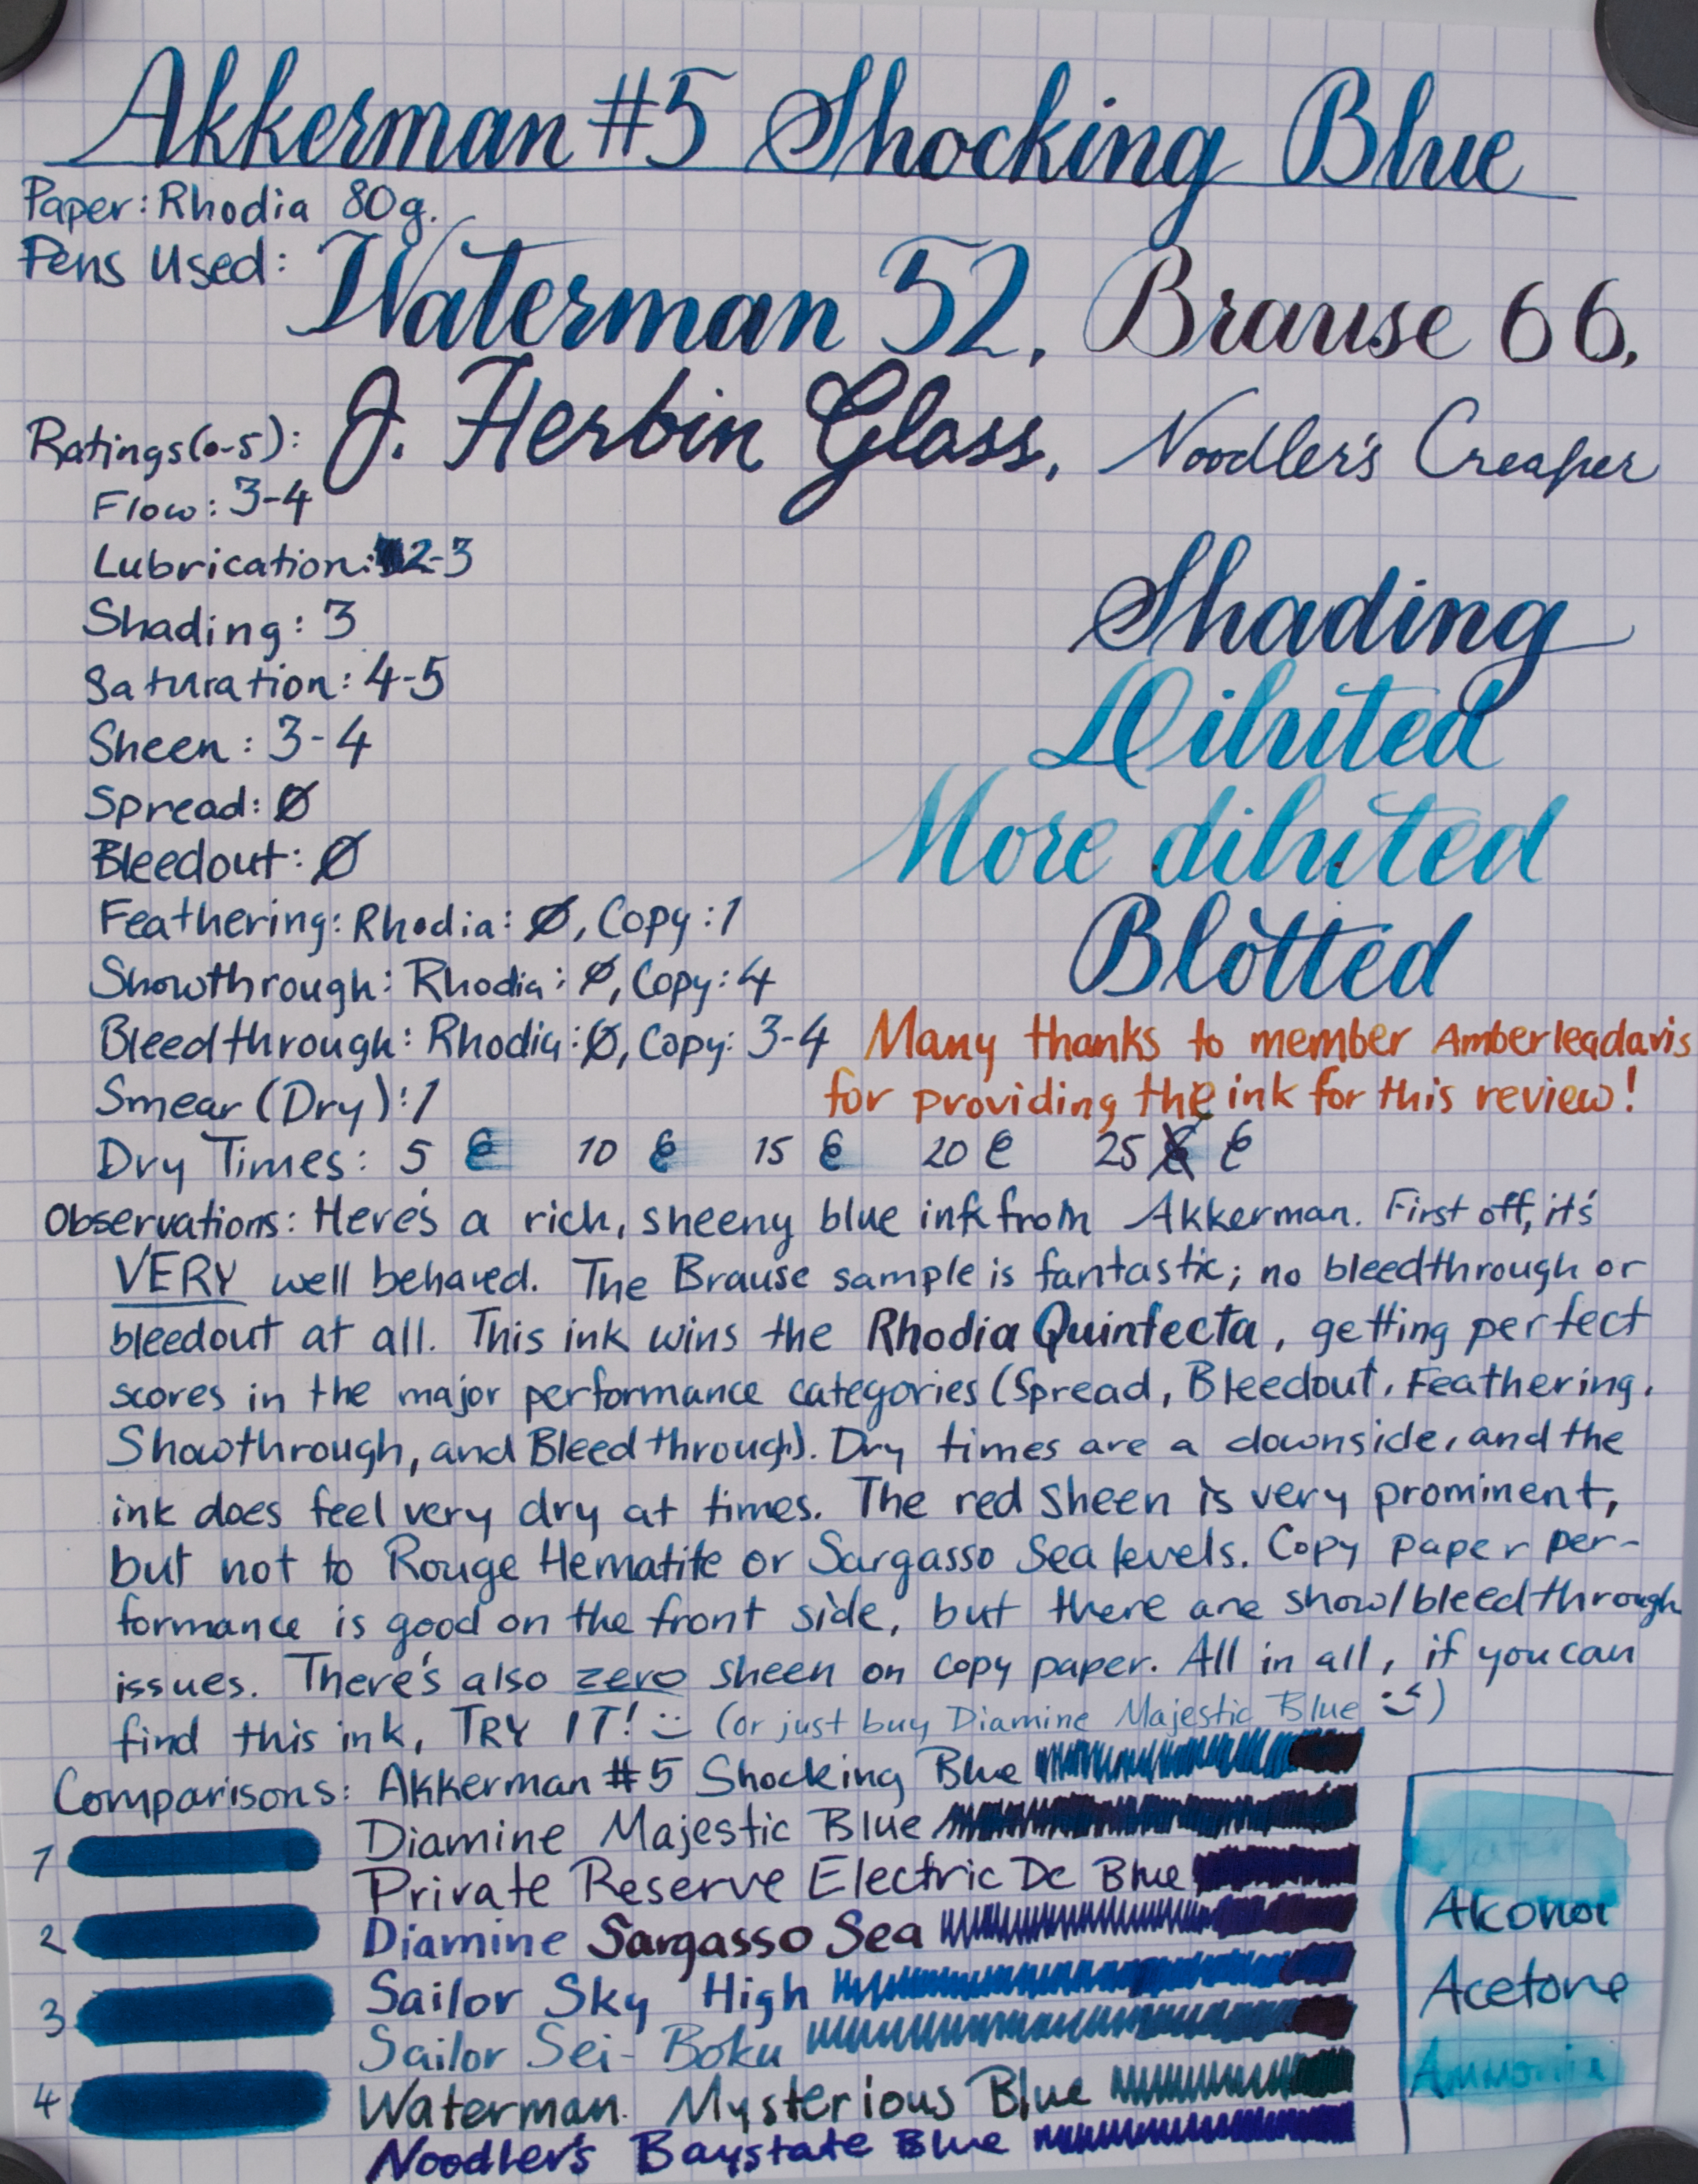 Akkerman #5 Shocking Blue
Paper: Rhodia 80g.
Pens Used: Waterman 52, Brause 66,
J. Herbin Glass, Noodler's Creaper
Ratings (0-5):
Flow: 3-4
Lubrication: 2-3
Shading: 3
Saturation: 4-5
Sheen: 3-4
Spread: Ø
Bleedout: Ø
Feathering: Rhodia: Ø, Copy: 1
Showthrough: Rhodia: Ø, Copy: 4
Bleedthrough: Rhodia: Ø, Copy: 3-4
Smear (Dry): 1
Shading
Diluted
More diluted
Blotted
Many thanks to member Amberleadavis
for providing the ink for this review!
Dry Times: 5 € 10 € 15 € 20 € 25 €
Observations: Here's a rich, sheeny blue ink from Akkerman. First off, it's
VERY well behaved. The Brause sample is fantastic; no bleedthrough or
bleedout at all. This ink wins the Rhodia Quinfecta, getting perfect
scores in the major performance categories (Spread, Bleedout, Feathering,
Showthrough, and Bleedthrough). Dry times are a downside, and the
ink does feel very dry at times. The red sheen is very prominent,
but not to Rouge Hematite or Sargasso Sea levels. Copy paper per-
formance is good on the front side, but there are show/bleedthrough
issues. There's also zero sheen on copy paper. All in all, if you can
find this ink, TRY IT! :) (or just buy Diamine Majestic Blue ;))
Comparisons: Akkerman #5 Shocking Blue
Diamine Majestic Blue
Private Reserve Electric DC Blue
Diamine Sargasso Sea
Sailor Sky High
Sailor Sei-Boku
Waterman Mysterious Blue
Noodler's Baystate Blue
1
2
3
4
Water
Alcohol
Acetone
Ammonia